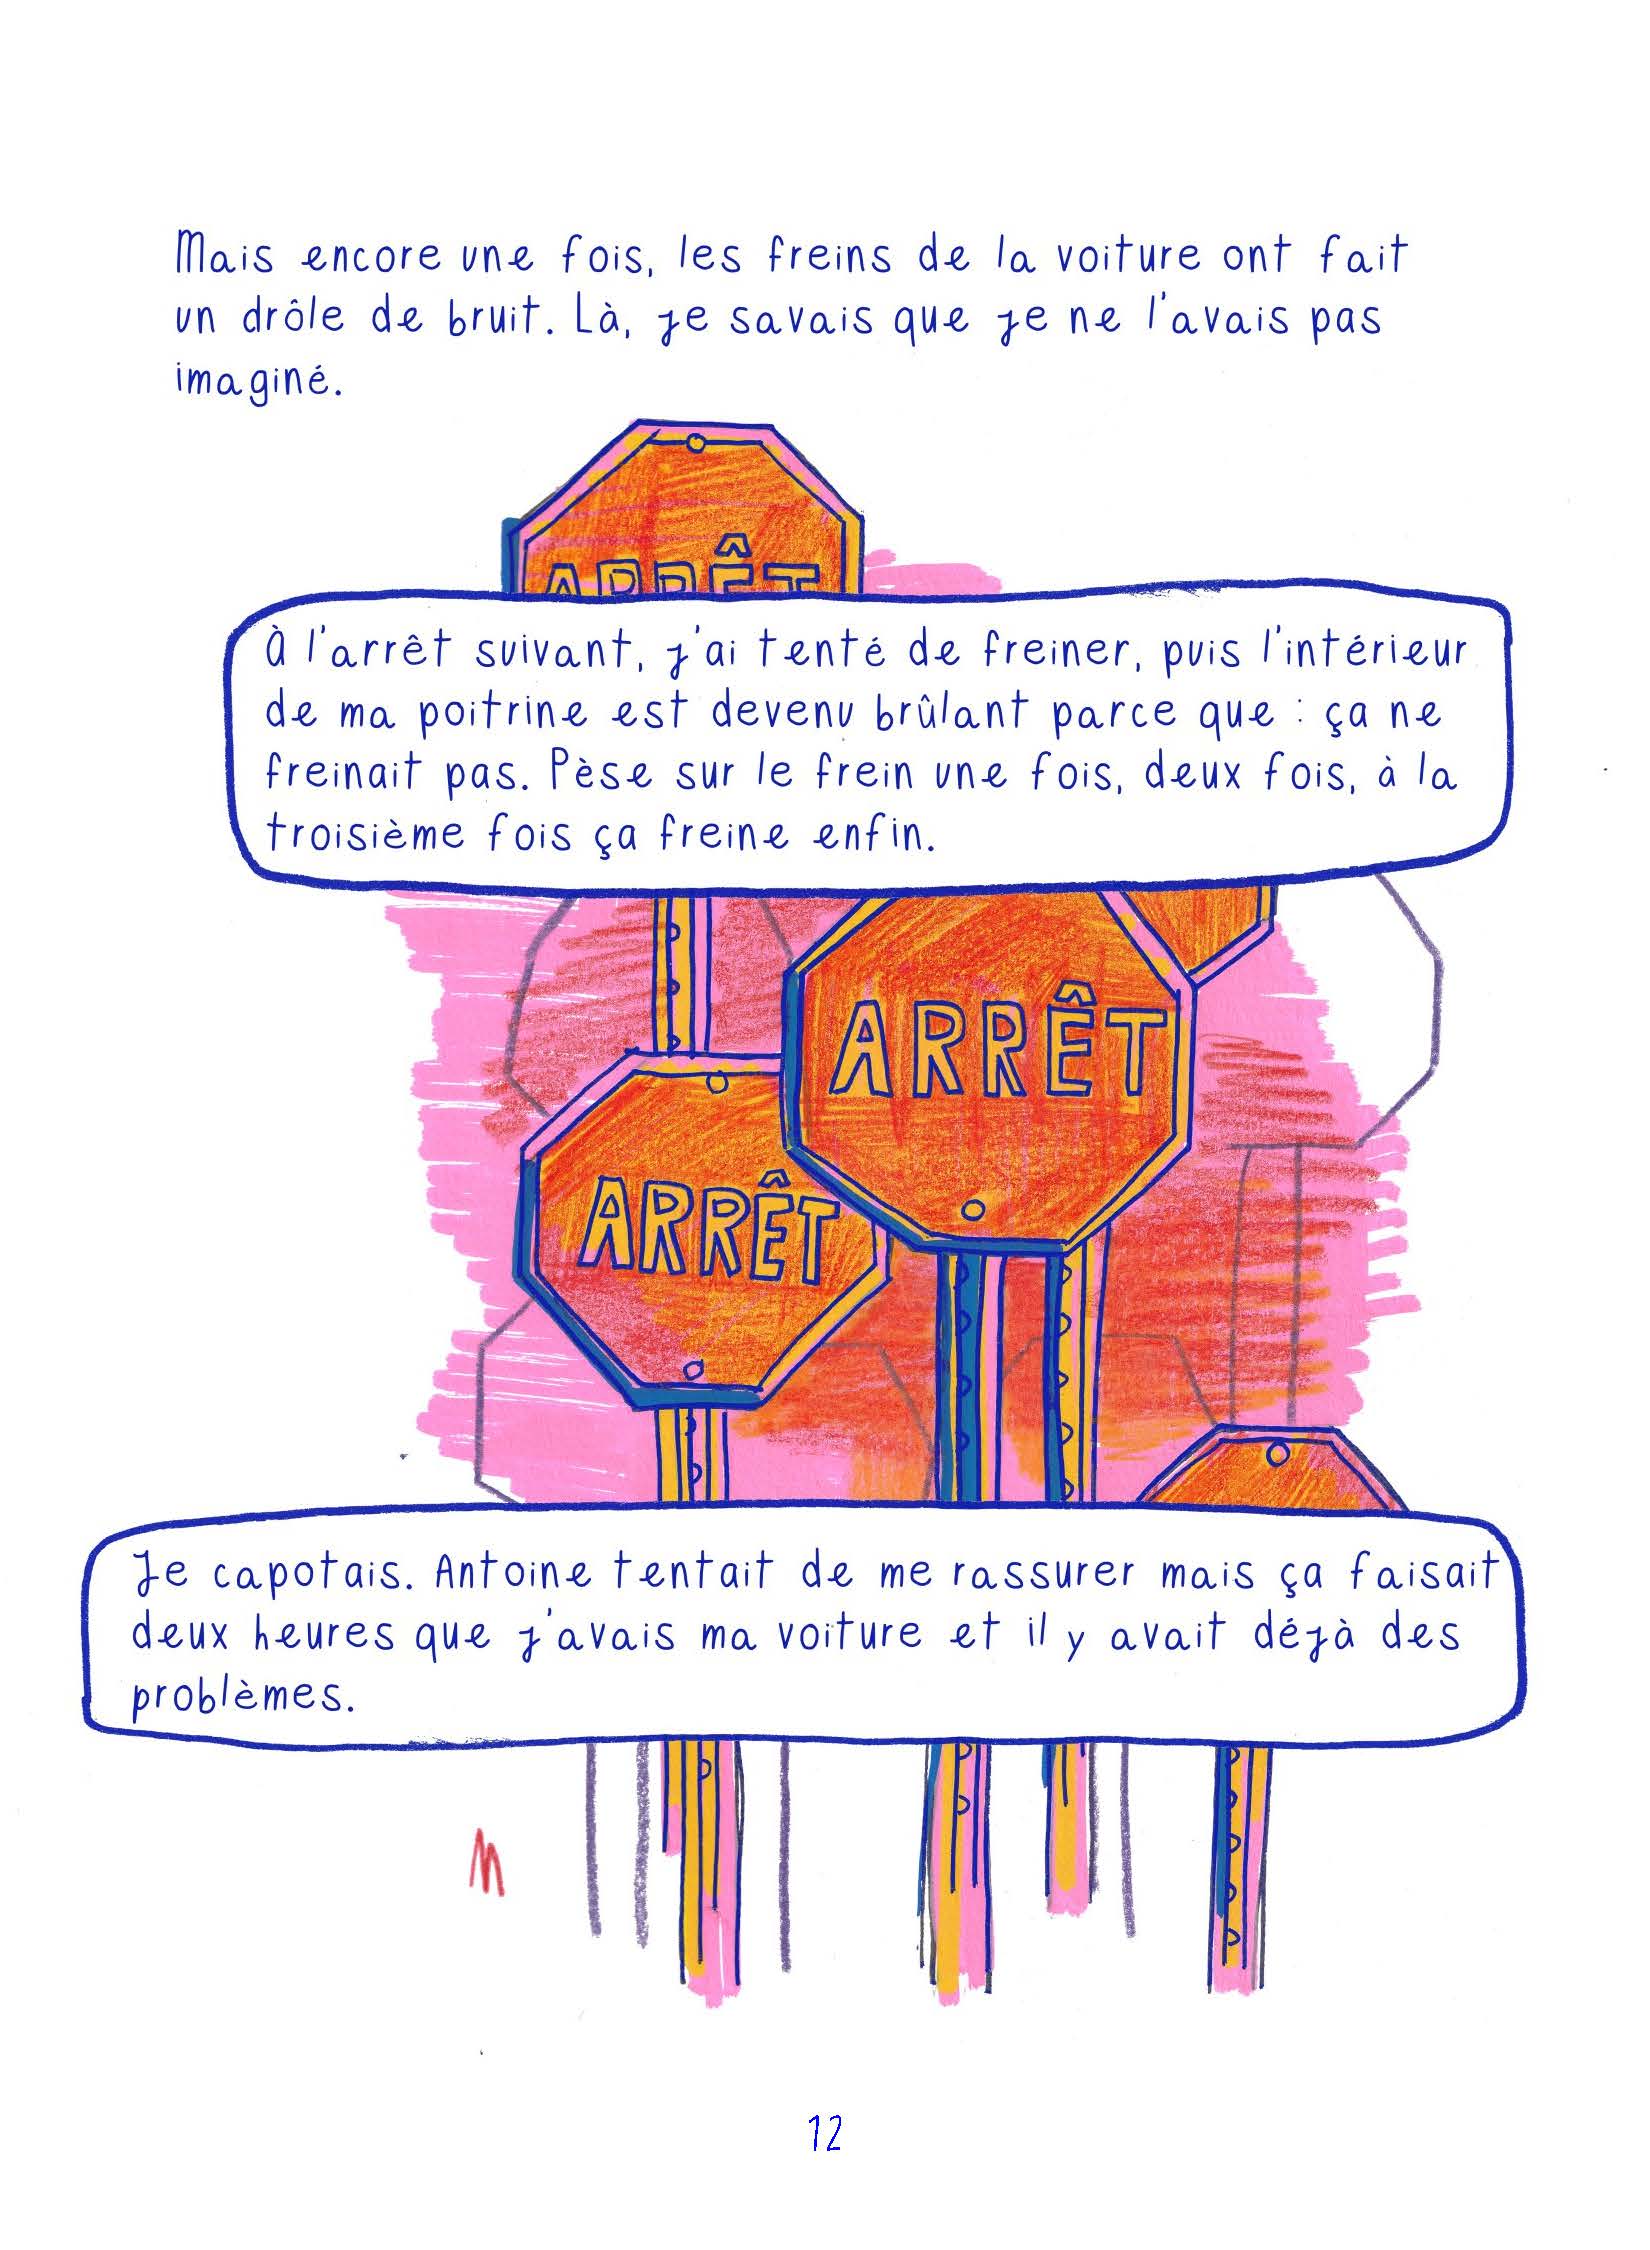 Mais encore une fois, les freins de la voiture ont fait
un drôle de bruit. Là, je savais que je ne l'avais pas
imaginé.
ARRÊT
À l'arrêt suivant, j'ai tenté de freiner, puis l'intérieur
de ma poitrine est devenu brûlant parce que : ça ne
freinait pas. Pèse sur le frein une fois, deux fois, à la
troisième fois ça freine enfin.
ARRÊT
ARRÊT
Je capotais. Antoine tentait de me rassurer mais ça faisait
deux heures que j'avais ma voiture et il y avait déjà des
problèmes.
12